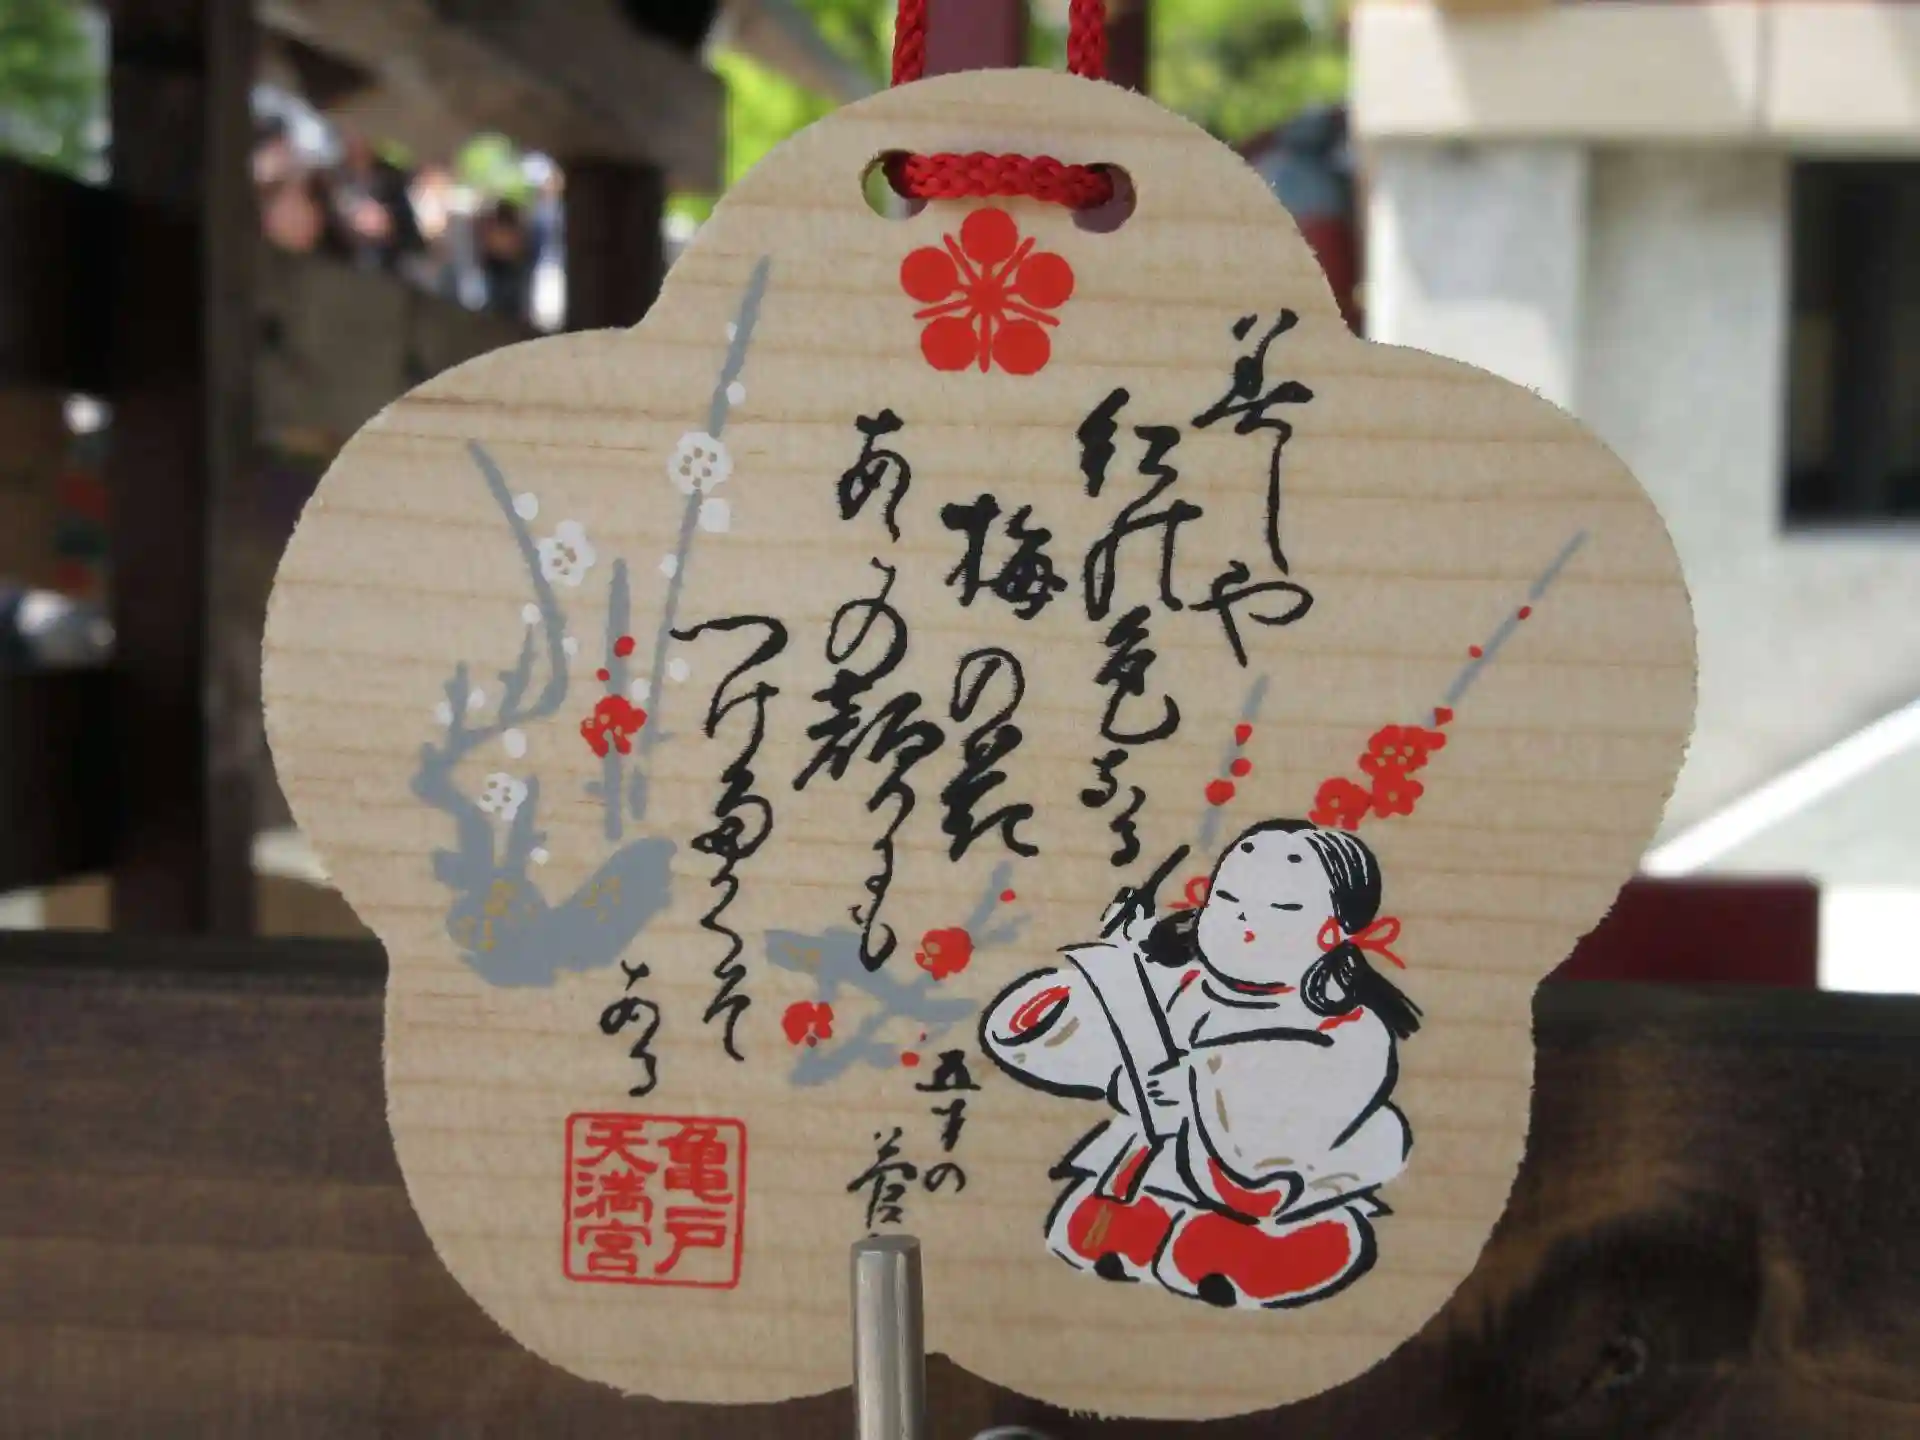 美しや
紅の色なる
梅の花
あこの顔にも
つけたくぞ
ある
五才の
菅
亀戸
天満宮